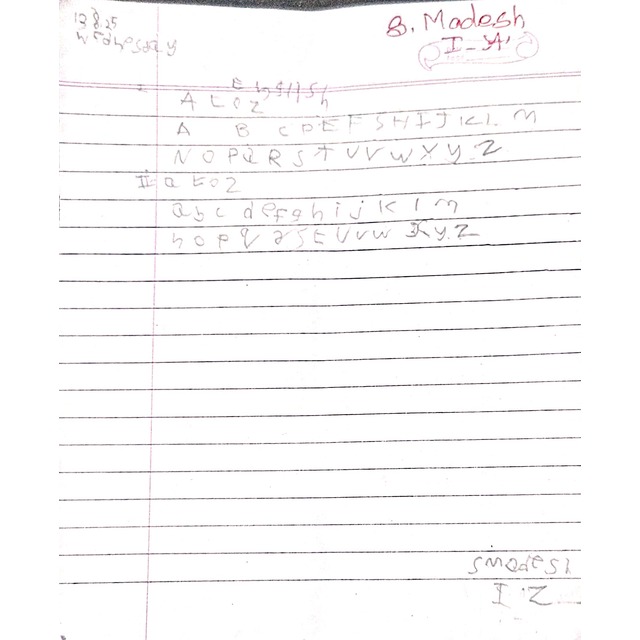 13.8.25
Wednesday
B. Madesh
I - 'A'
English
I A to Z
A B C D E F S H I J K L M
N O P Q R S T U V W X Y Z
II a to z
a b c d e f g h i j k l m
n o p q r s t u v w x y z
smadesh
I Z